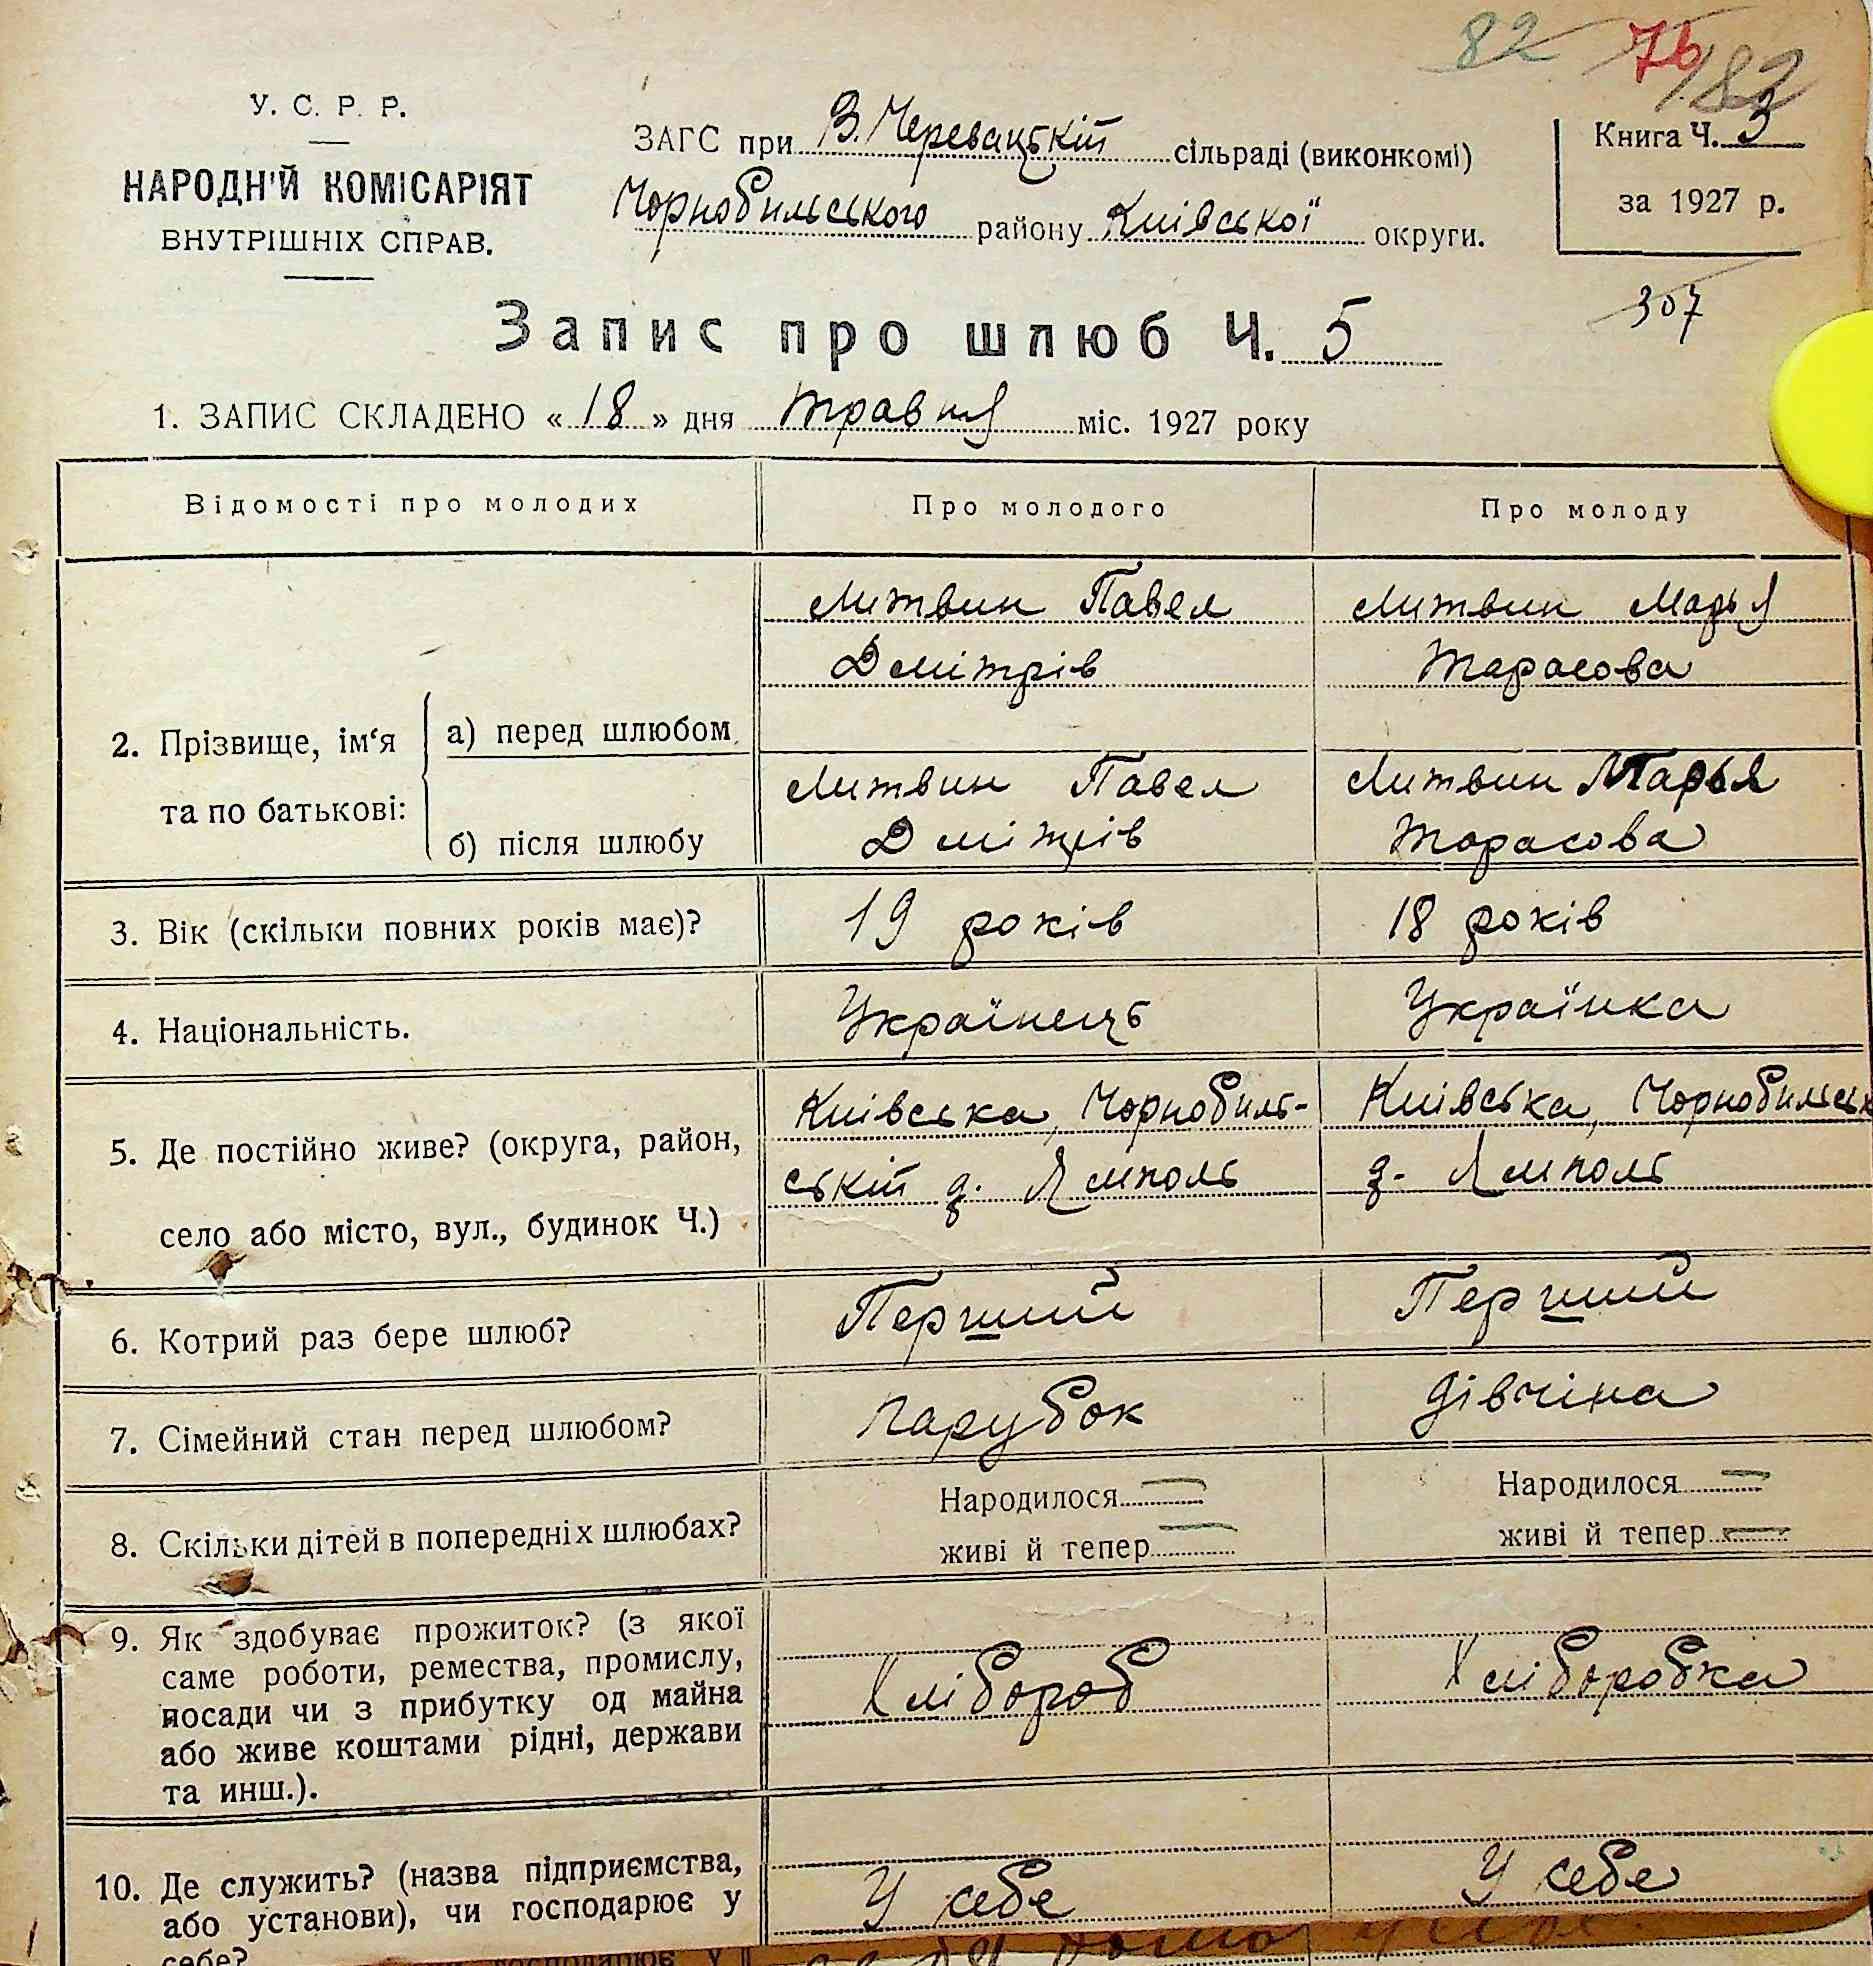 82 76 182
У. С. Р. Р.
НАРОДН'Й КОМІСАРІЯТ
ВНУТРІШНІХ СПРАВ.
ЗАГС при В. Черевацькій сільраді (виконкомі)
Чорнобильського району Київської округи.
Книга Ч. 3
за 1927 р.
307
Запис про шлюб Ч. 5
1. ЗАПИС СКЛАДЕНО « 18 » дня травня міс. 1927 року
Відомості про молодих Про молодого Про молоду
2. Прізвище, ім'я та по батькові:
а) перед шлюбом
Литвин Павел
Дмітрів
Литвин Марья
Тарасова
б) після шлюбу
Литвин Павел
Дмітрів
Литвин Марья
Тарасова
3. Вік (скільки повних років має)? 19 років 18 років
4. Національність. Українець Українка
5. Де постійно живе? (округа, район,
село або місто, вул., будинок Ч.)
Київська, Чорнобиль-
ській д. Ямполь
Київська, Чорнобильськ
д. Ямполь
6. Котрий раз бере шлюб? Перший Перший
7. Сімейний стан перед шлюбом? парубок дівчіна
8. Скільки дітей в попередніх шлюбах?
Народилося —
живі й тепер —
Народилося —
живі й тепер —
9. Як здобуває прожиток? (з якої
саме роботи, ремества, промислу,
посади чи з прибутку од майна
або живе коштами рідні, держави
та инш.).
Хлібороб
Хліборобка
10. Де служить? (назва підприємства,
або установи), чи господарює у
себе?
У себе
У себе
господарює у